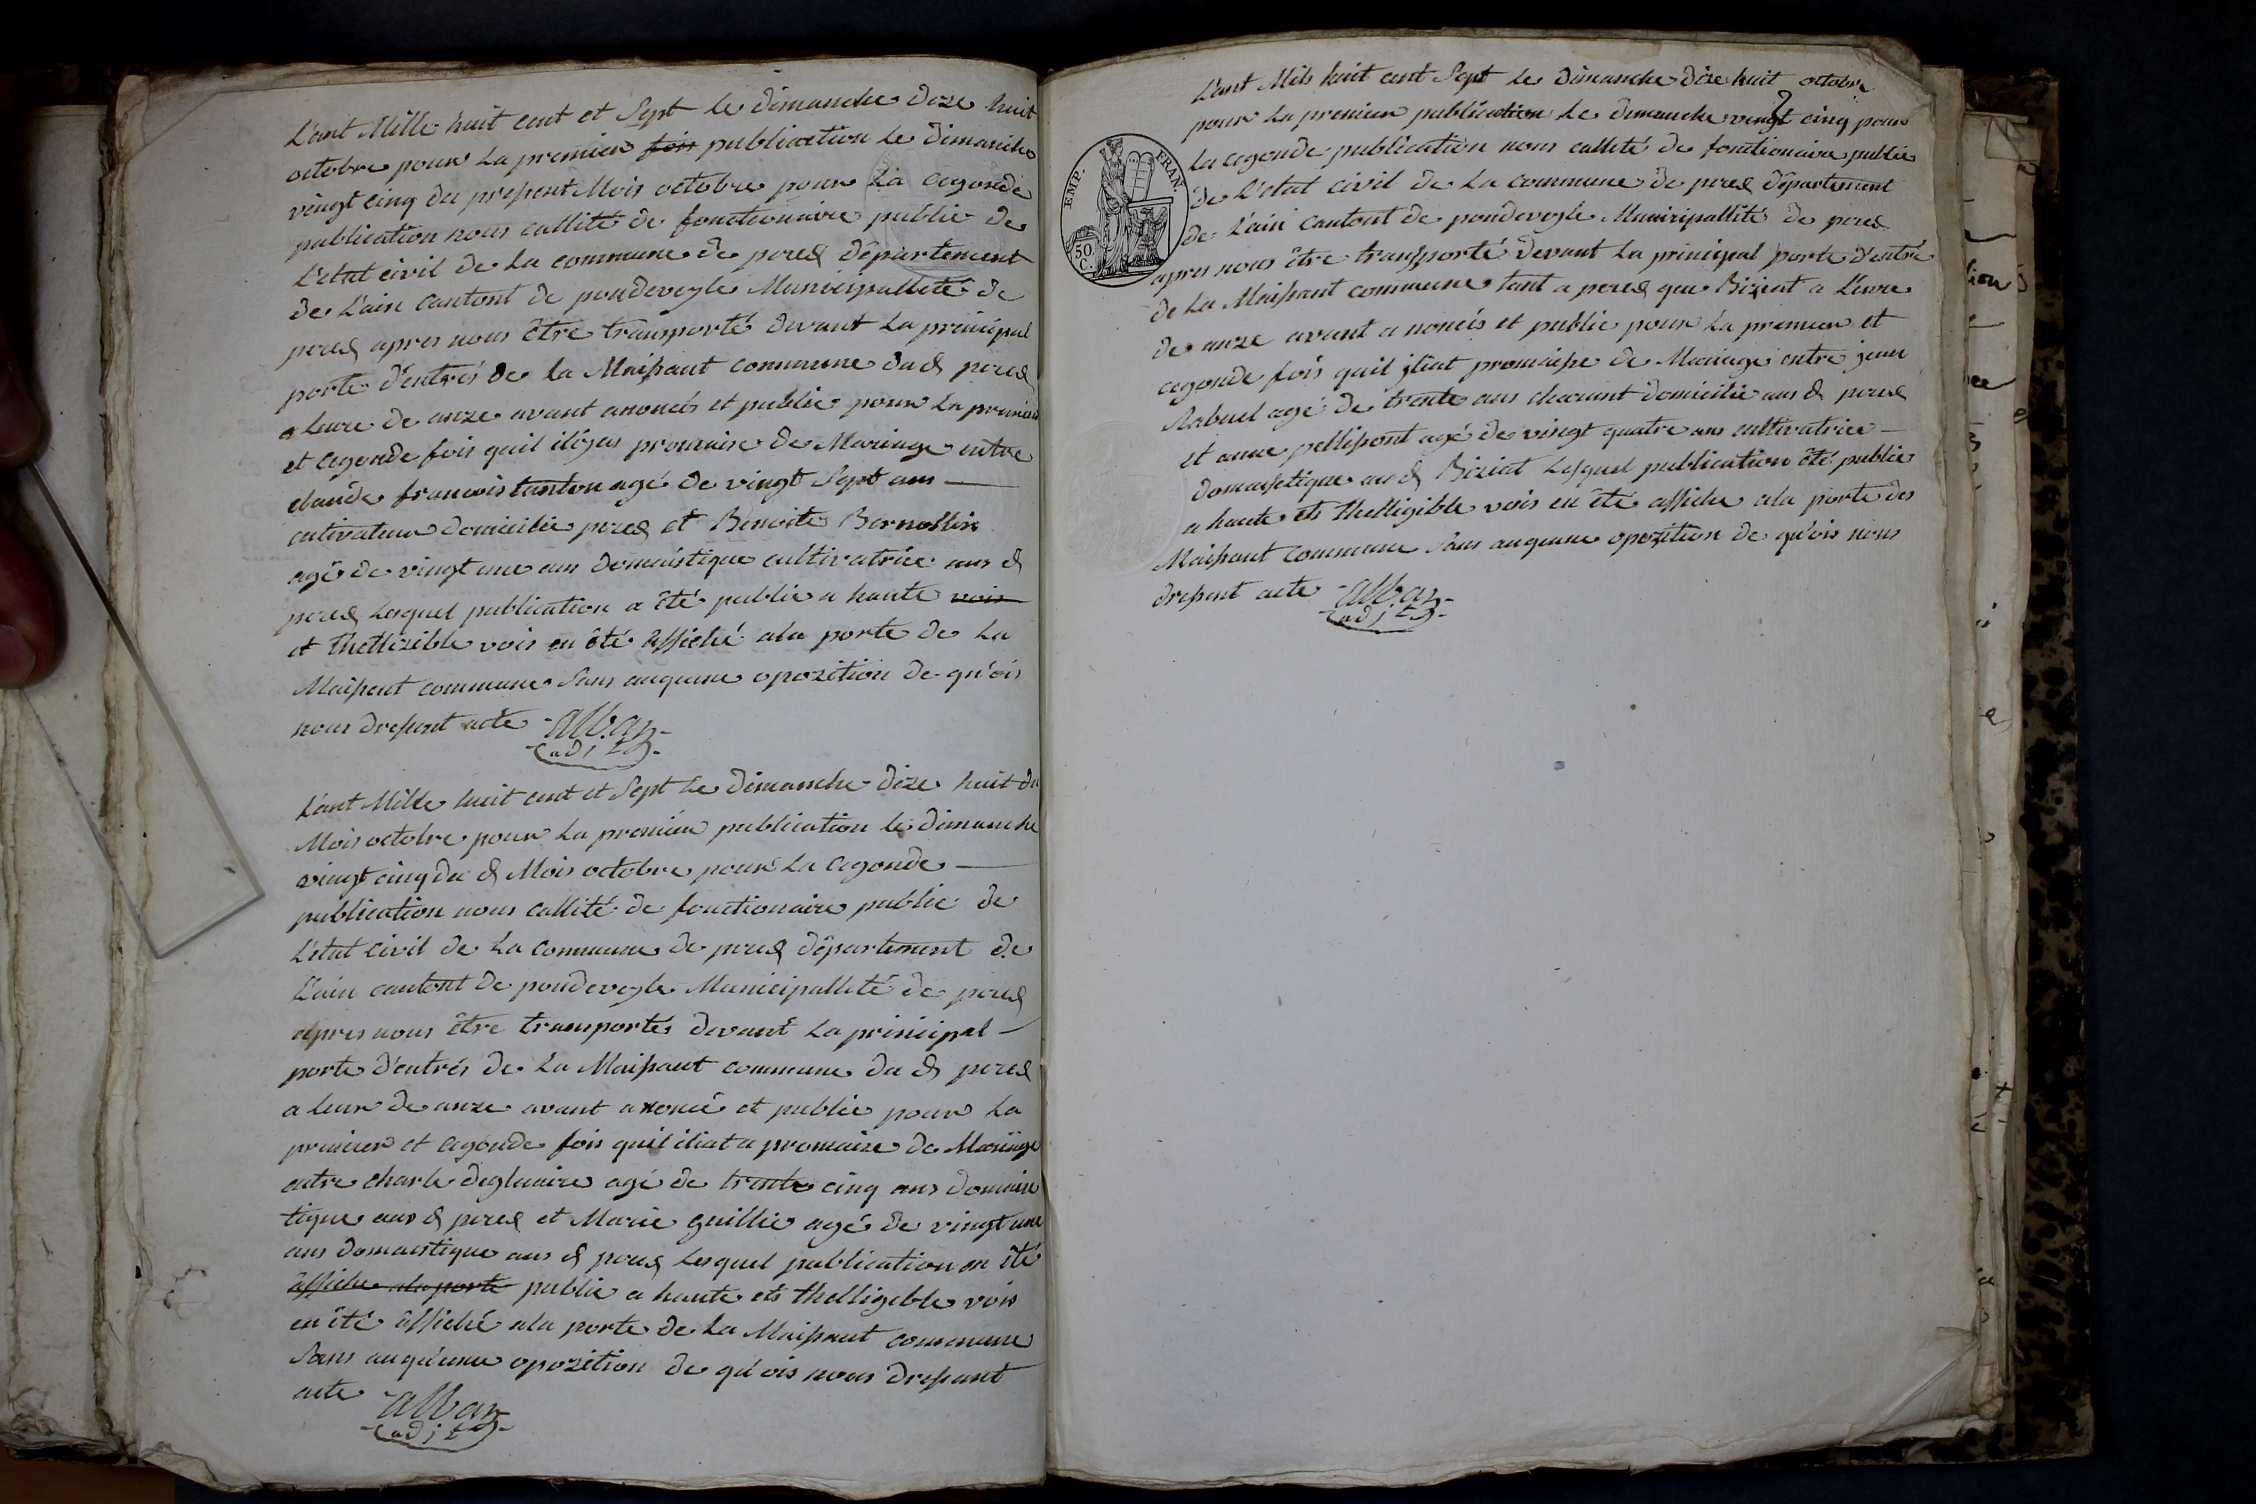 L'ant Mille huit cent et Sept le dimanche dize huit
octobre pour la premier fois publication le dimanche
vingt cinq du present Mois octobre pour la cegonde
publication nous callité de fonctionaire public de
L'etat civil de la commune de perex département
de L'ain cantont de pondeveyle Municipallité de
perex apres nous être transporté devant la principal
porte d'entrés de la Maisant commune dud perex
a leure de anze avant anoncés et public pour la premier
et cegonde fois quil ilÿas promaise de Mariage entre
claude francois tanton agé de vingt Sept ans
cultivateur domicilié perex et Benoite Bernollin
agé de vingt une ans domaistique cultivatrice aus d
perex Lequel publication a été public a haute vois
et thellizible vois en été affiché ala porte de La
Maisant commune Sans auqune opozition de qu'ois
nous dressent acte alban
adjt
L'ant Mille huit cent et Sept Le dimanche dize huit du
Mois octobre pour La premier publication le dimanche
vingt cinq du d Mois octobre pour La cegonde
publication nous callité de fonctionaire public de
L'etat civil de La commune de perex département de
L'ain cantont de pondeveyle Municipallité de perex
apres nous être transportés devant La principal
porte d'entrés de La Maisant commune du d perex
a leure de anze avant anoncé et public pour La
premier et cegonde fois quil iliat a promaise de Mariage
entre charle degluaire agé de trente cinq ans domais
tique aus d perex et Marie guillie agé de vingt une
ans domaistique aus d perex Lesquel publication on été
affiche ala porte public a haute ets thelligeble vois
en été affiché ala porte de La Maisant commune
Sans auqu'une opozition de qu'ois nous dressant
acte alban
adjt
L'ant Mils huit cent Sept Le dimanche dixe huit octobre
pour La premier publication Le dimanche vingt cinq pour
La cegonde publication nous callité de fonctionaire public
de L'etat civil de La commune de perex département
de L'ain cantont de pondeveyle Municipallité de perex
apres nous être transporté devant La principal porte d'entré
de La Maisant commune tant a perex que Biziat a Leure
de anze avant a noncés et public pour La premier et
cegonde fois quil iliat promaise de Mariage entre jean
Rabuel agé de trente ans charont domicilié aus d perex
et anne pellissont agé de vingt quatre ans cultivatrice
domaistique au d Biziat Lesquel publication été public
a haute ets thelligible vois en été affiche ala porte des
Maisant commune Sans auqune opozition de qu'ois nous
dressent acte alban
adjt
EMP. FRAN.
50 C.